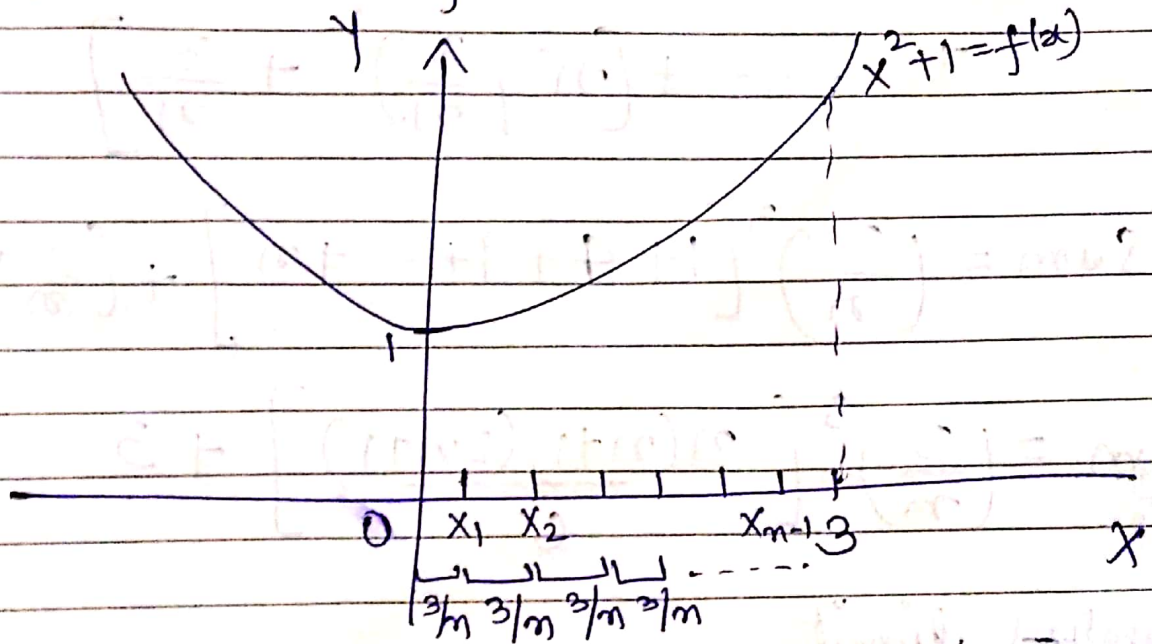 Y
x²+1=f(x)
1
O x₁ x₂ xₙ₋₁ 3 X
3/n 3/n 3/n 3/n